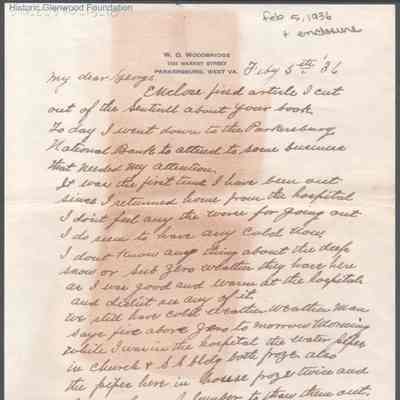 Historic Glenwood Foundation
Feb 5, 1936
+ enclosure
W. D. WOODBRIDGE
MARKET STREET
PARKERSBURG, WEST VA.
Feby 5th '36
My dear George
Enclose find article I cut
out of the Sentinel about your book.
To day I went down to the Parkersburg
National Bank to attend to some business
that needed my attention.
It was the first time I have been out
since I returned home from the hospital
I dont feel any the worse for going out
I do seem to have any Cold thou
I dont Know any thing about the deep
snow or sub zero weather they have here
as I was good and warm at the hospital
and didnt see any of it.
We still have cold weather Weather Man
says five above zero to morrow Morning
While I was in the hospital the water pipes
in church & S.S bldg both froze also
the pipes here in house froze twice and
plumber to thaw them out.